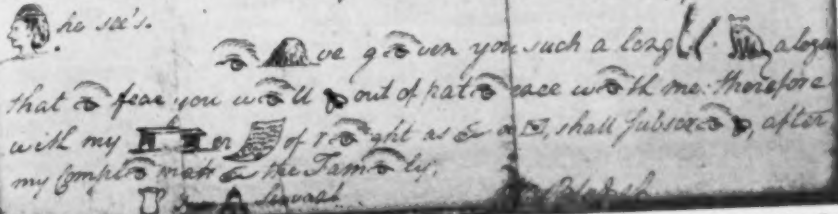 he see's.
ve g ven you such a long . alogue
that fear you w ll out of pat ence w th me: therefore
with my er of r ght as a , shall subscr , after
my Compl ments the Fam ly.
Servant